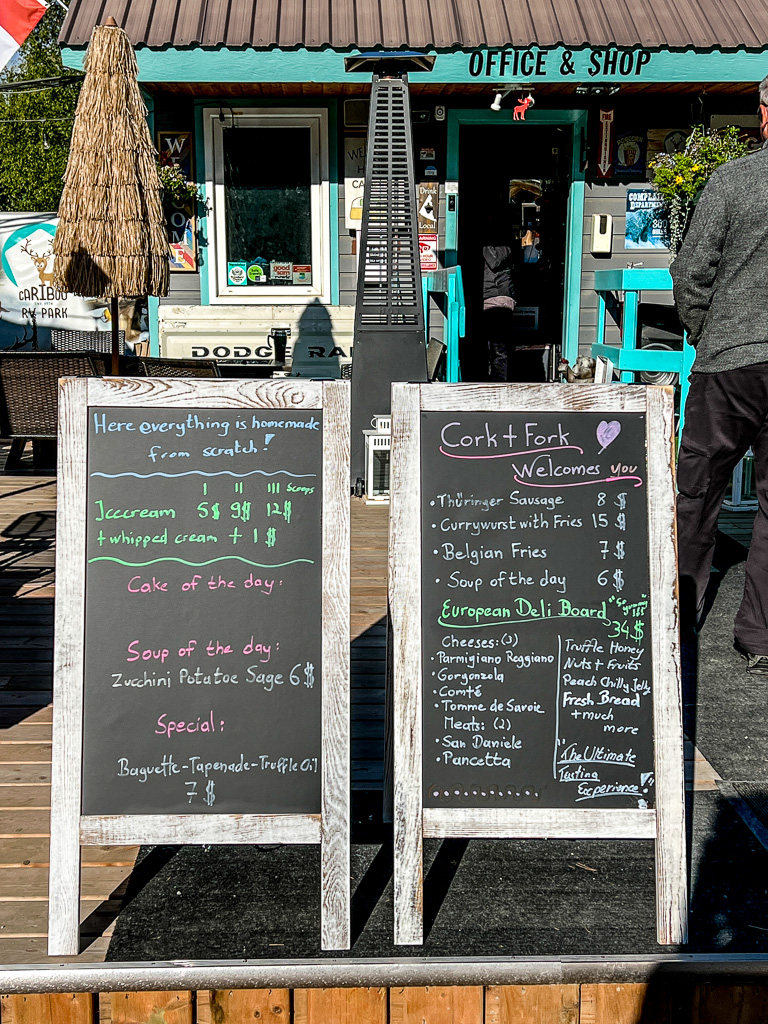 OFFICE & SHOP
Drink
Local
CARIBOO
RV PARK
DODGE RA
good
sam
Here everything is homemade
from scratch!
I II III Scoops
Icecream 5$ 9$ 12$
+ whipped cream + 1 $
Cake of the day:
Soup of the day:
Zucchini Potatoe Sage 6$
Special:
Baguette-Tapenade-Truffle Oil
7 $
Cork + Fork
Welcomes you
• Thüringer Sausage 8 $
• Currywurst with Fries 15 $
• Belgian Fries 7 $
• Soup of the day 6 $
European Deli Board
34$
Cheeses: (3)
• Parmigiano Reggiano
• Gorgonzola
• Comté
• Tomme de Savoie
Meats: (2)
• San Daniele
• Pancetta
Truffle Honey
Nuts + Fruits
Peach Chilly Jelly
Fresh Bread
+ much
more
"The Ultimate
Tasting
Experience!"